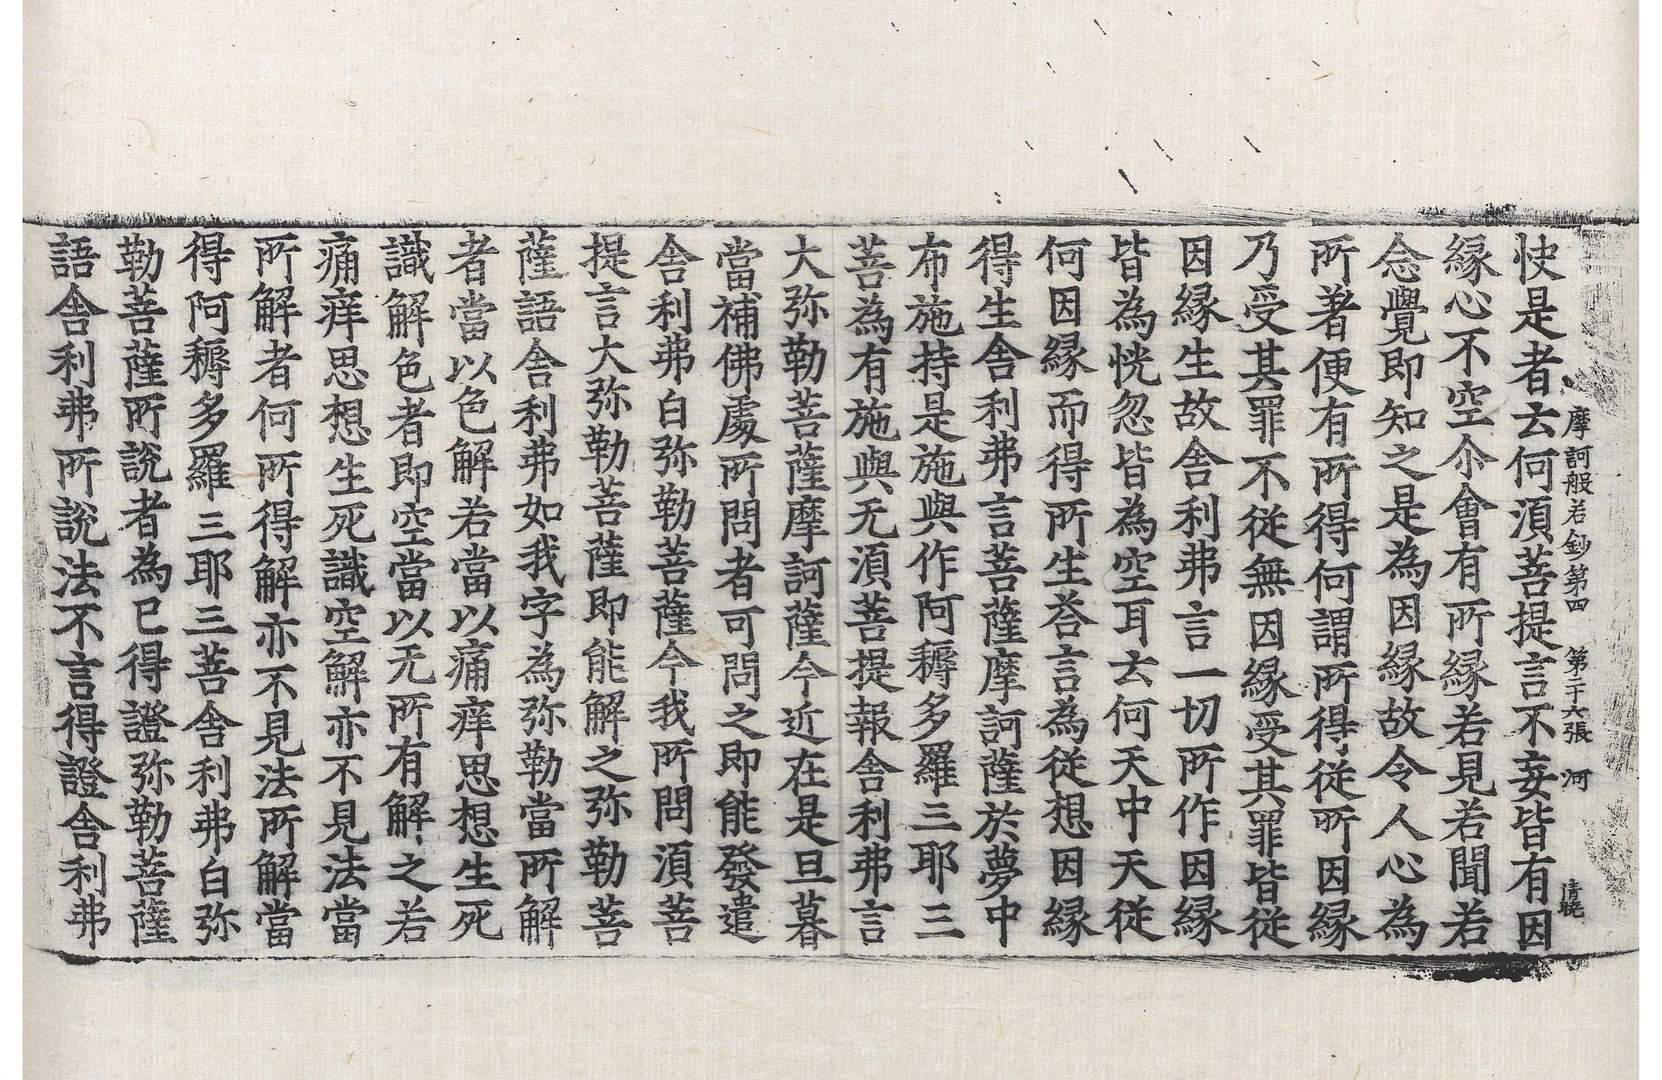 摩訶般若鈔第四　第二十六張　河　清曉
快是者云何須菩提言不妄皆有因
縁心不空尒會有所縁若見若聞若
念覺即知之是為因縁故令人心為
所著便有所得何謂所得從所因縁
乃受其罪不從無因縁受其罪皆從
因縁生故舎利弗言一切所作因縁
皆為恍忽皆為空耳云何天中天從
何因縁而得所生荅言為從想因縁
得生舎利弗言菩薩摩訶薩於夢中
布施持是施與作阿耨多羅三耶三
菩為有施與无須菩提報舎利弗言
大弥勒菩薩摩訶薩今近在是旦暮
當補佛處所問者可問之即能發遣
舎利弗白弥勒菩薩今我所問須菩
提言大弥勒菩薩即能解之弥勒菩
薩語舎利弗如我字為弥勒當所解
者當以色解若當以痛痒思想生死
識解色者即空當以无所有解之若
痛痒思想生死識空解亦不見法當
所解者何所得解亦不見法所解當
得阿耨多羅三耶三菩舎利弗白弥
勒菩薩所說者為已得證弥勒菩薩
語舎利弗所說法不言得證舎利弗